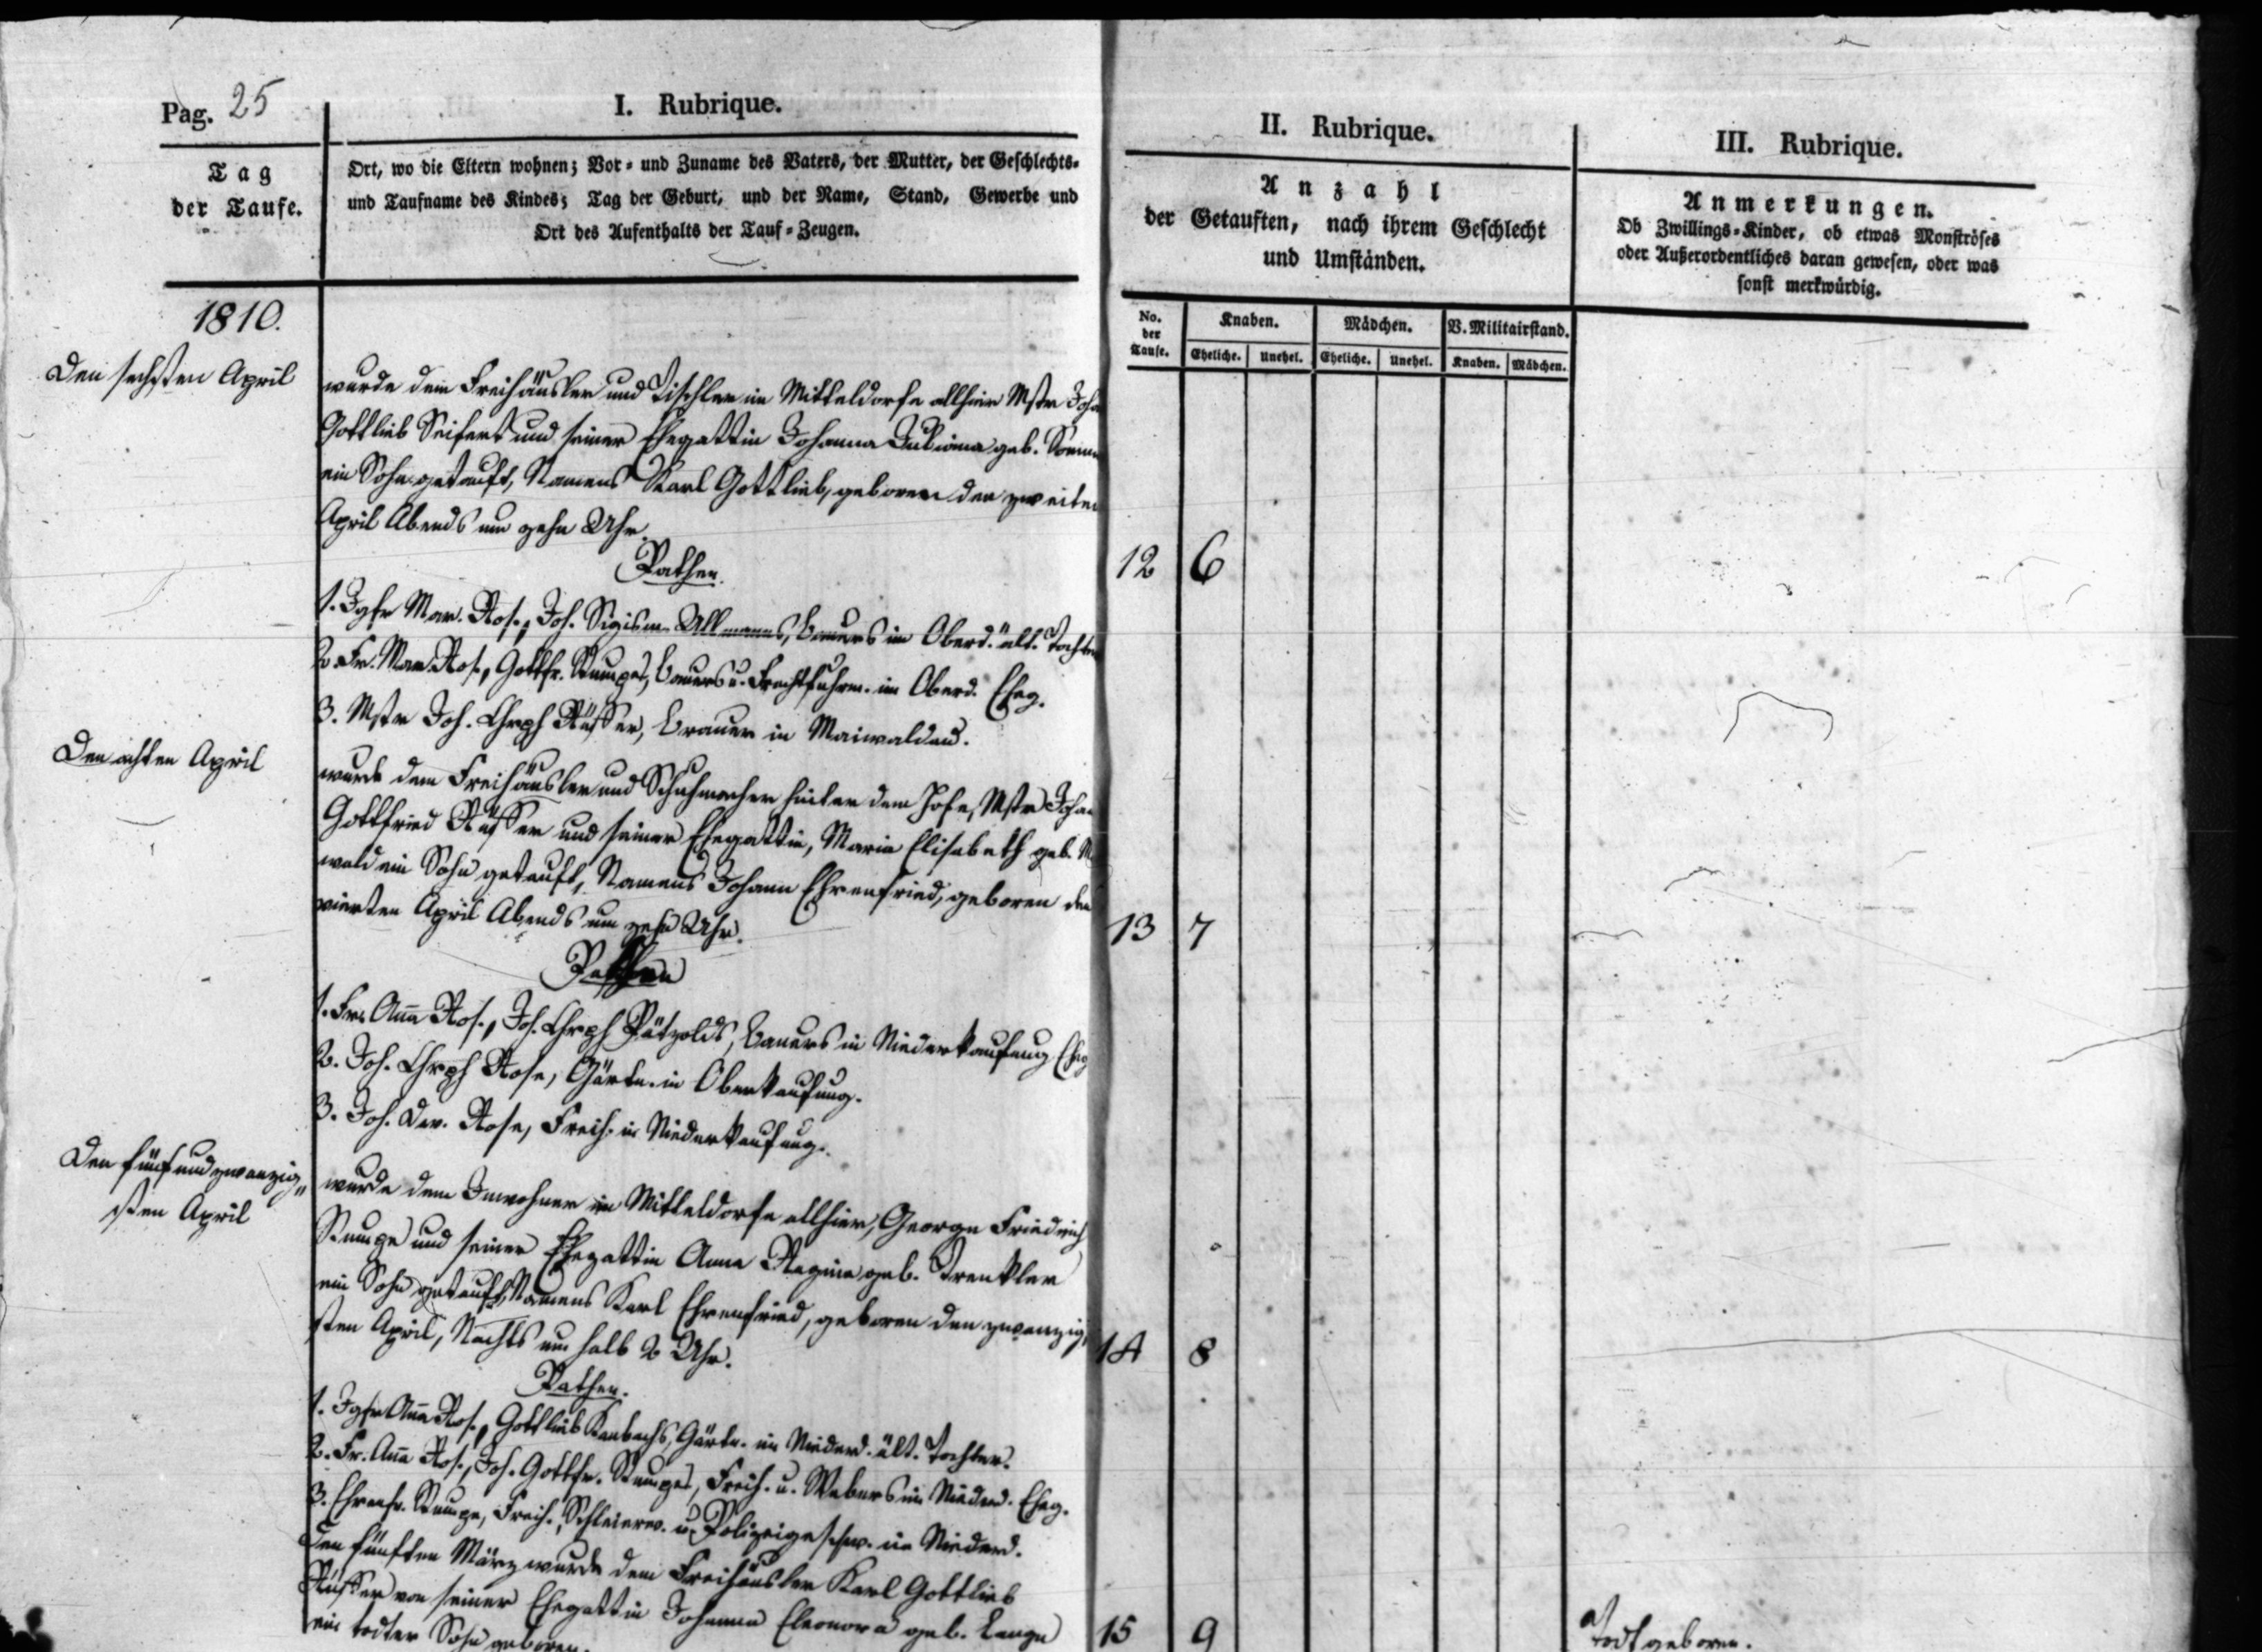 Pag. 25
I. Rubrique.
Tag
der Taufe.
Ort, wo die Eltern wohnen; Vor- und Zuname des Vaters, der Mutter, der Geschlechts-
und Taufname des Kindes; Tag der Geburt, und der Name, Stand, Gewerbe und
Ort des Aufenthalts der Tauf-Zeugen.
II. Rubrique.
Anzahl
der Getauften, nach ihrem Geschlecht
und Umständen.
III. Rubrique.
Anmerkungen.
Ob Zwillings-Kinder, ob etwas Monströses
oder Außerordentliches daran gewesen, oder was
sonst merkwürdig.
No.
der
Taufe.
Knaben.
Mädchen.
V. Militairstand.
Eheliche. Unehel. Eheliche. Unehel. Knaben. Mädchen.
1810.
Den sechsten April
wurde dem Freihäusler und Tischler im Mitteldorfe allhier Mstr Joha
Gottlieb Seifert und seiner Ehegattin Johanna geb.
ein Sohn getauft, Namens Karl Gottlieb, geboren den zweiten
April Abends um zehn Uhr.
12 6
Pathen.
1. Jgfr Mar. Ros., Joh. Sigism. Ullmanns, Bauers im Oberd. ält. Tochter
2. Fr. Mar. Ros., Gottfr. Stumpes, Bauers u. Frachtfuhrm. im Oberd. Eheg.
3. Mstr Joh. Chrph Rüffer, Brauer in Maiwaldau.
Den achten April
wurde dem Freihäusler und Schuhmacher hinter dem Hofe, Mstr Johan
Gottfried Rüffer und seiner Ehegattin, Maria Elisabeth geb.
wald ein Sohn getauft, Namens Johann Ehrenfried, geboren den
vierten April Abends um zehn Uhr.
13 7
Pathen
1. Fr. Anna Ros., Joh. Chrph Pätzolds, Bauers in Niederkauffung Eheg
2. Joh. Chrph Rose, Gärtn. in Oberkauffung.
3. Joh. Dav. Rose, Freih. in Niederkauffung.
Den fünfundzwanzig-
sten April
wurde dem Inwohner im Mitteldorfe allhier, George Friedrich
Stumpe und seiner Ehegattin Anna Regina geb. Trenkler
ein Sohn getauft, Namens Karl Ehrenfried, geboren den zwanzig-
sten April, Nachts um halb 2 Uhr.
14 8
Pathen.
1. Jgfr Anna Ros., Gottlieb Gärtn. im Niederd. ält. Tochter.
2. Fr. Anna Ros., Joh. Gottfr. Stumpes, Freih. u. Webers im Niederd. Eheg.
3. Ehrenfr. Stumpe, Freih., Schleierw. u. Polizeigeschw. im Niederd.
Den fünften März wurde dem Freihäusler Karl Gottlieb
Rüffer von seiner Ehegattin Johanna Eleonora geb. Lange
ein todter Sohn geboren.
15 9
Todtgeboren.